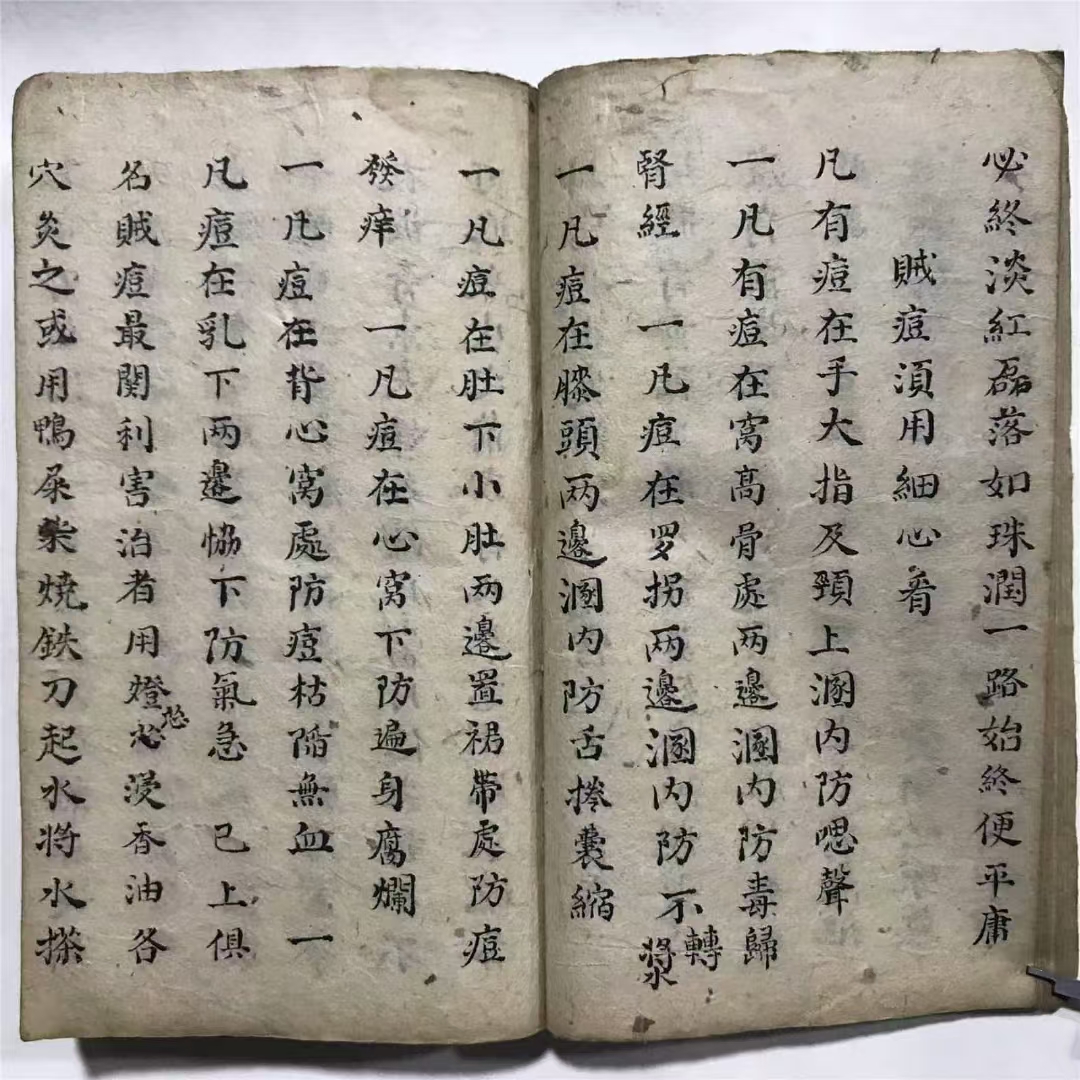 必終淡紅磊落如珠潤一路始終便平庸
賊痘須用細心看
凡有痘在手大指及頸上溷内防嗯聲
一凡有痘在窩高骨處两邊溷内防毒歸
腎經　一凡痘在罗拐两邊溷内防不轉漿
一凡痘在膝頭两邊溷内防舌捲囊縮
一凡痘在肚下小肚两邊置裙帶處防痘
發痒　一凡痘在心窩下防遍身腐爛
一凡痘在背心窩處防痘枯陷無血　一
凡痘在乳下两邊恊下防氣急　已上俱
名賊痘最関利害治者用燈心㴍香油各
穴灸之或用鴨屎柴燒鉄刀起水将水搽